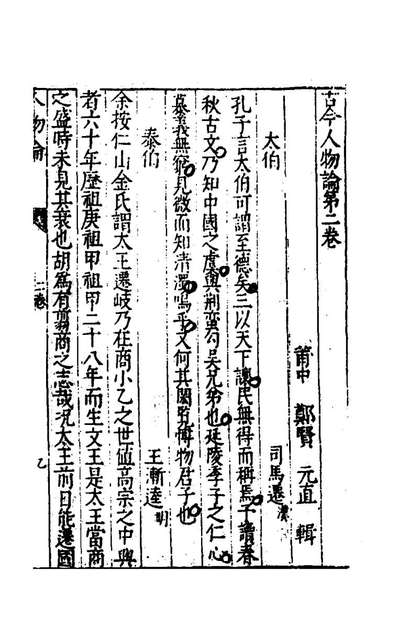 古今人物論第二卷
莆中 鄭賢 元直 輯
太伯 司馬遷 漢
孔子言太伯可謂至德矣三以天下讓民無得而稱焉予讀春
秋古文乃知中國之虞與荆蠻勾吳兄弟也延陵季子之仁心
慕義無窮見微而知清濁嗚乎又何其閎覽博物君子也
泰伯 王漸逵 明
余按仁山金氏謂太王遷岐乃在商小乙之世值高宗之中興
者六十年歷祖庚祖甲祖甲二十八年而生文王是太王當商
之盛時未見其衰也胡爲有翦商之志哉况太王前日能遷國
人物論 二卷 乙